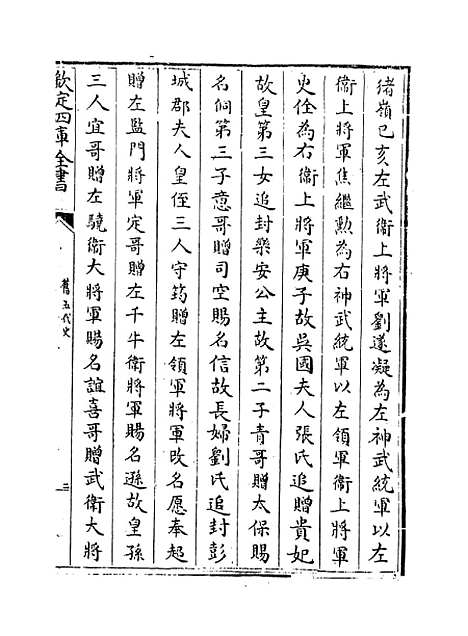 緒嶺己亥左武衛上將軍劉遂凝為左神武統軍以左
衛上將軍焦繼勲為右神武統軍以左領軍衛上將軍
史佺為右衛上將軍庚子故吳國夫人張氏追贈貴妃
故皇第三女追封樂安公主故第二子青哥贈太保賜
名侗第三子意哥贈司空賜名信故長婦劉氏追封彭
城郡夫人皇侄三人守筠贈左領軍將軍改名愿奉超
贈左監門將軍定哥贈左千牛衛將軍賜名遜故皇孫
三人宜哥贈左驍衛大將軍賜名誼喜哥贈武衛大將
欽定四庫全書
舊五代史
三